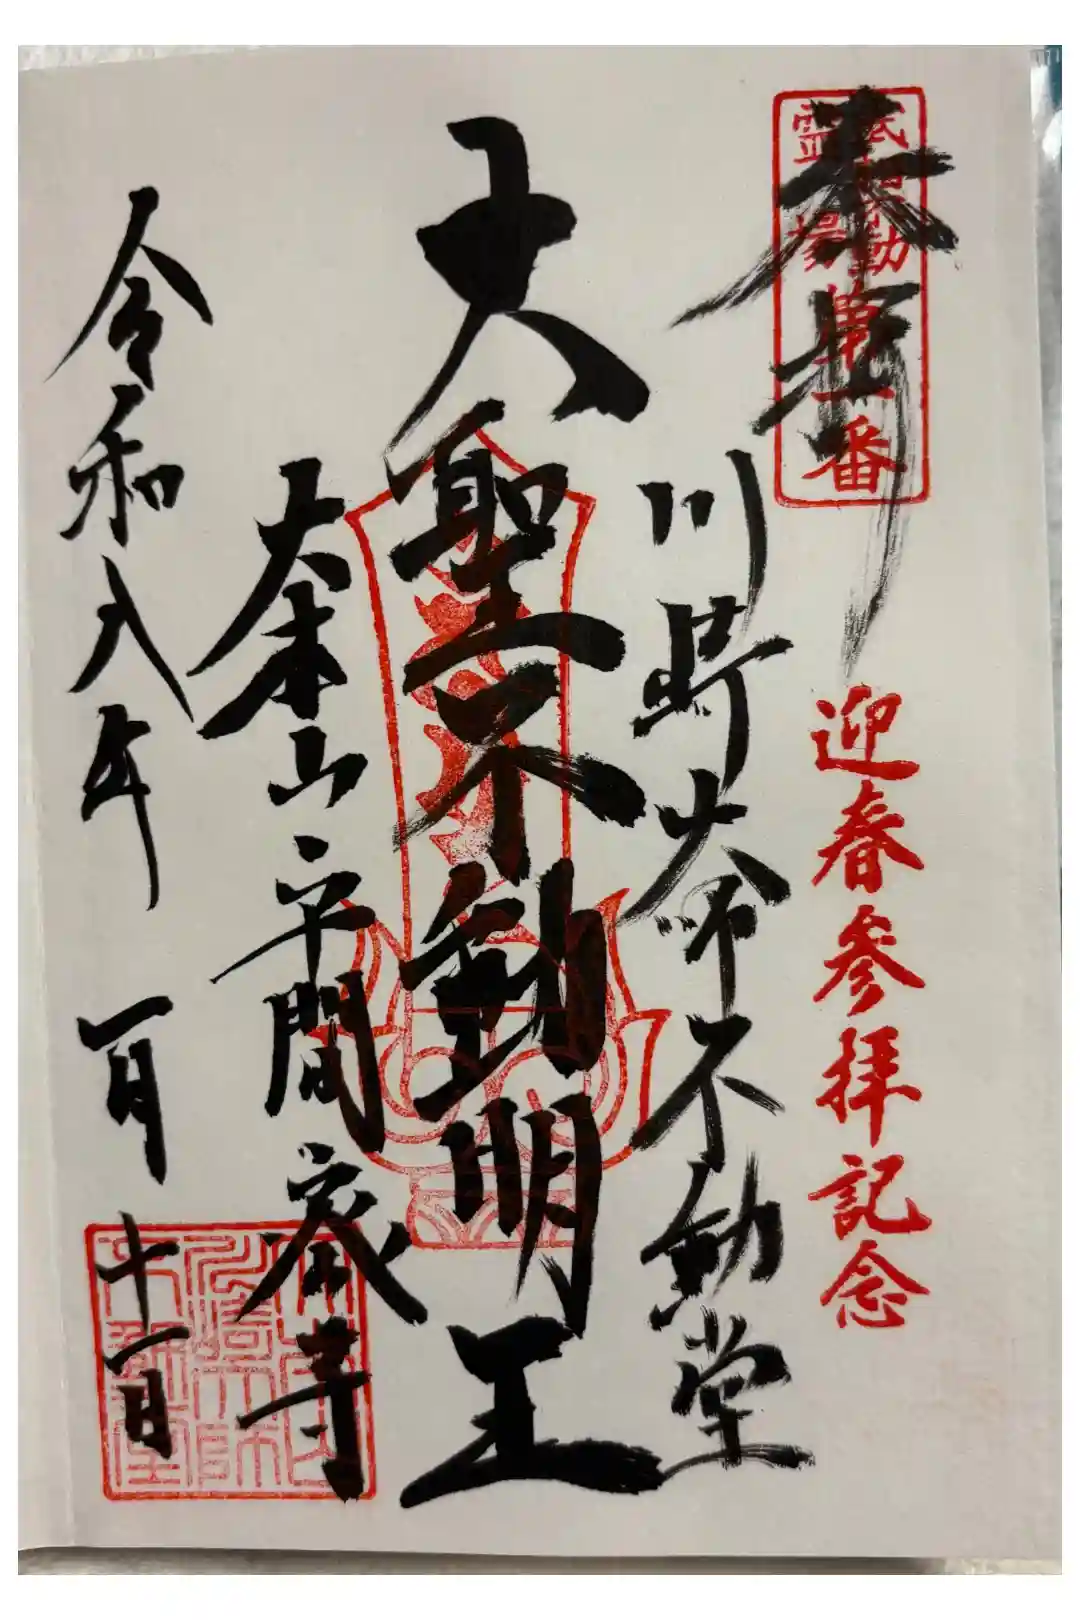 奉拝
武相不動
霊場
第一番
迎春参拝記念
川崎大師不動堂
大聖不動明王
大本山平間寺
令和八年 一月 十一日